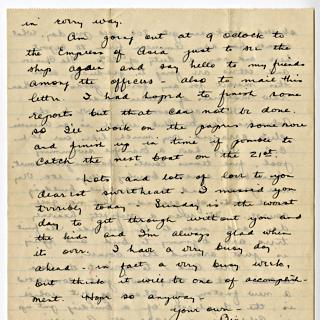 in every way.
Am going out at 9 oclock to
the Empress of Asia just to see the
ship again and say hello to my friends
among the officers - also to mail this
letter. I had hoped to finish some
reports but that can not be done,
so I'll work on the papers some more
and finish up in time if possible to
catch the next boat on the 21st.
Lots and lots of love to you
dearest sweetheart. I missed you
terribly today - Sunday is the worst
day to get through without you and
the kids and I'm always glad when
it's over. I have a very busy day
ahead - in fact a very busy week,
but think it will be one of accomplish-
ment. Hope so anyway -
Your own -